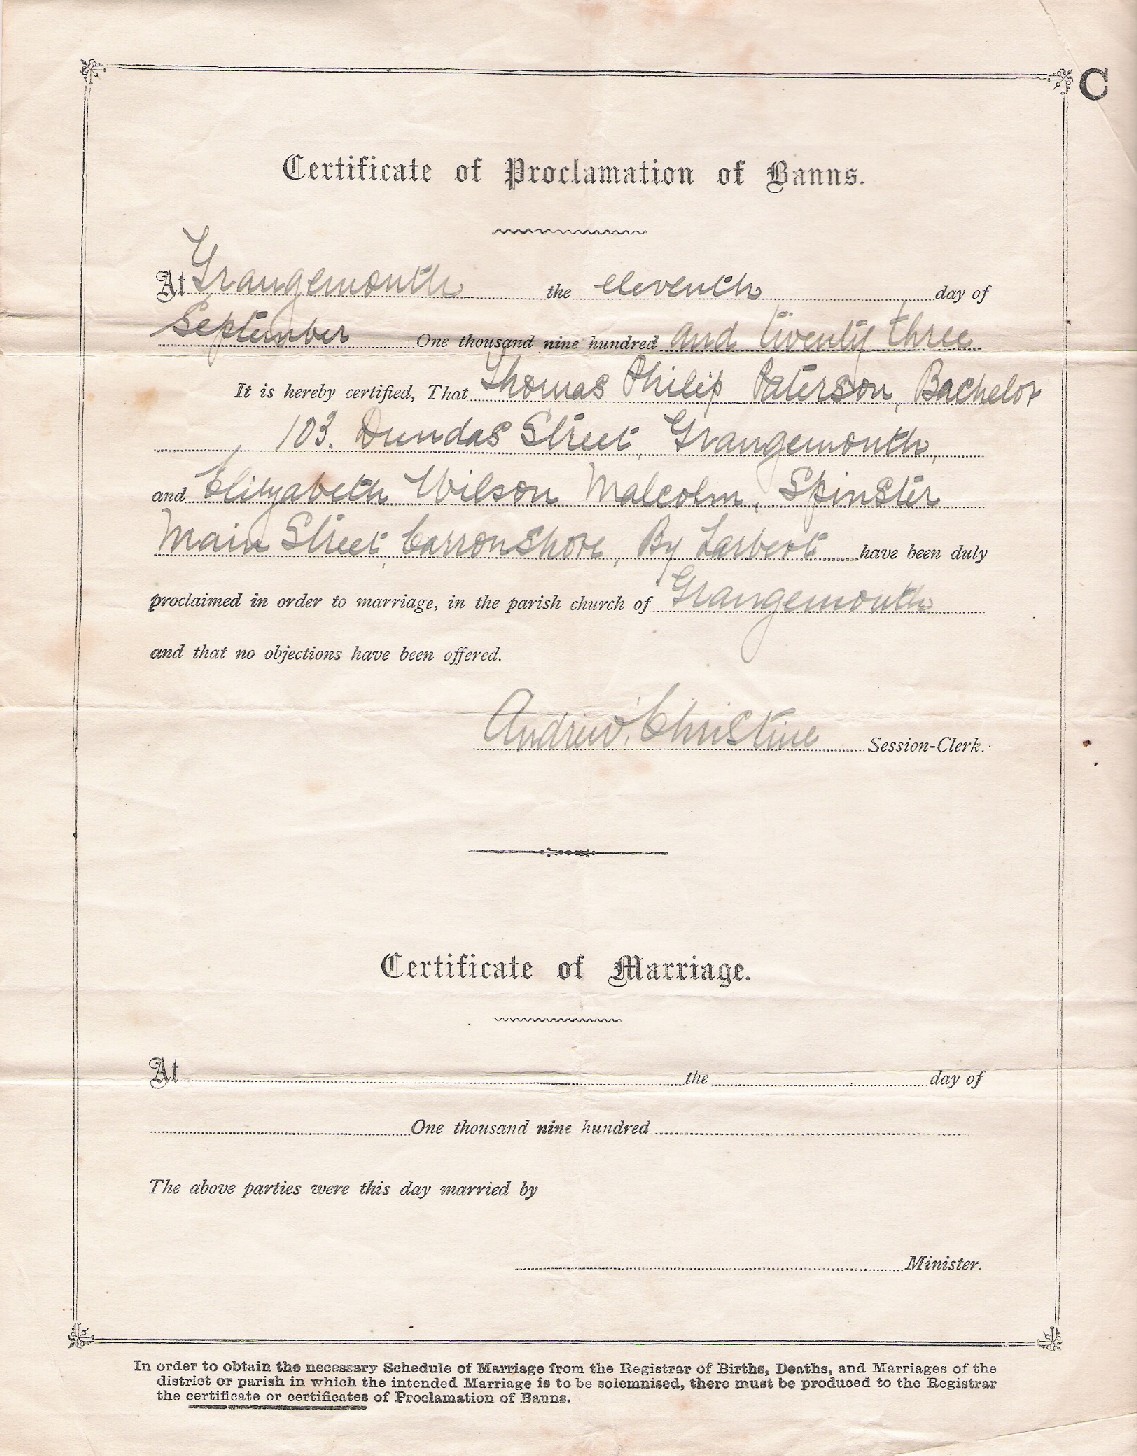 C
Certificate of Proclamation of Banns.
At Grangemouth the eleventh day of
September One thousand nine hundred and twenty three
It is hereby certified, That Thomas Philip Paterson, Bachelor
103. Dundas Street, Grangemouth,
and Elizabeth Wilson Malcolm, Spinster
Main Street, Carronshore, By Larbert have been duly
proclaimed in order to marriage, in the parish church of Grangemouth
and that no objections have been offered.
Andrew Christine Session-Clerk.
Certificate of Marriage.
At the day of
One thousand nine hundred
The above parties were this day married by
Minister.
In order to obtain the necessary Schedule of Marriage from the Registrar of Births, Deaths, and Marriages of the
district or parish in which the intended Marriage is to be solemnised, there must be produced to the Registrar
the certificate or certificates of Proclamation of Banns.